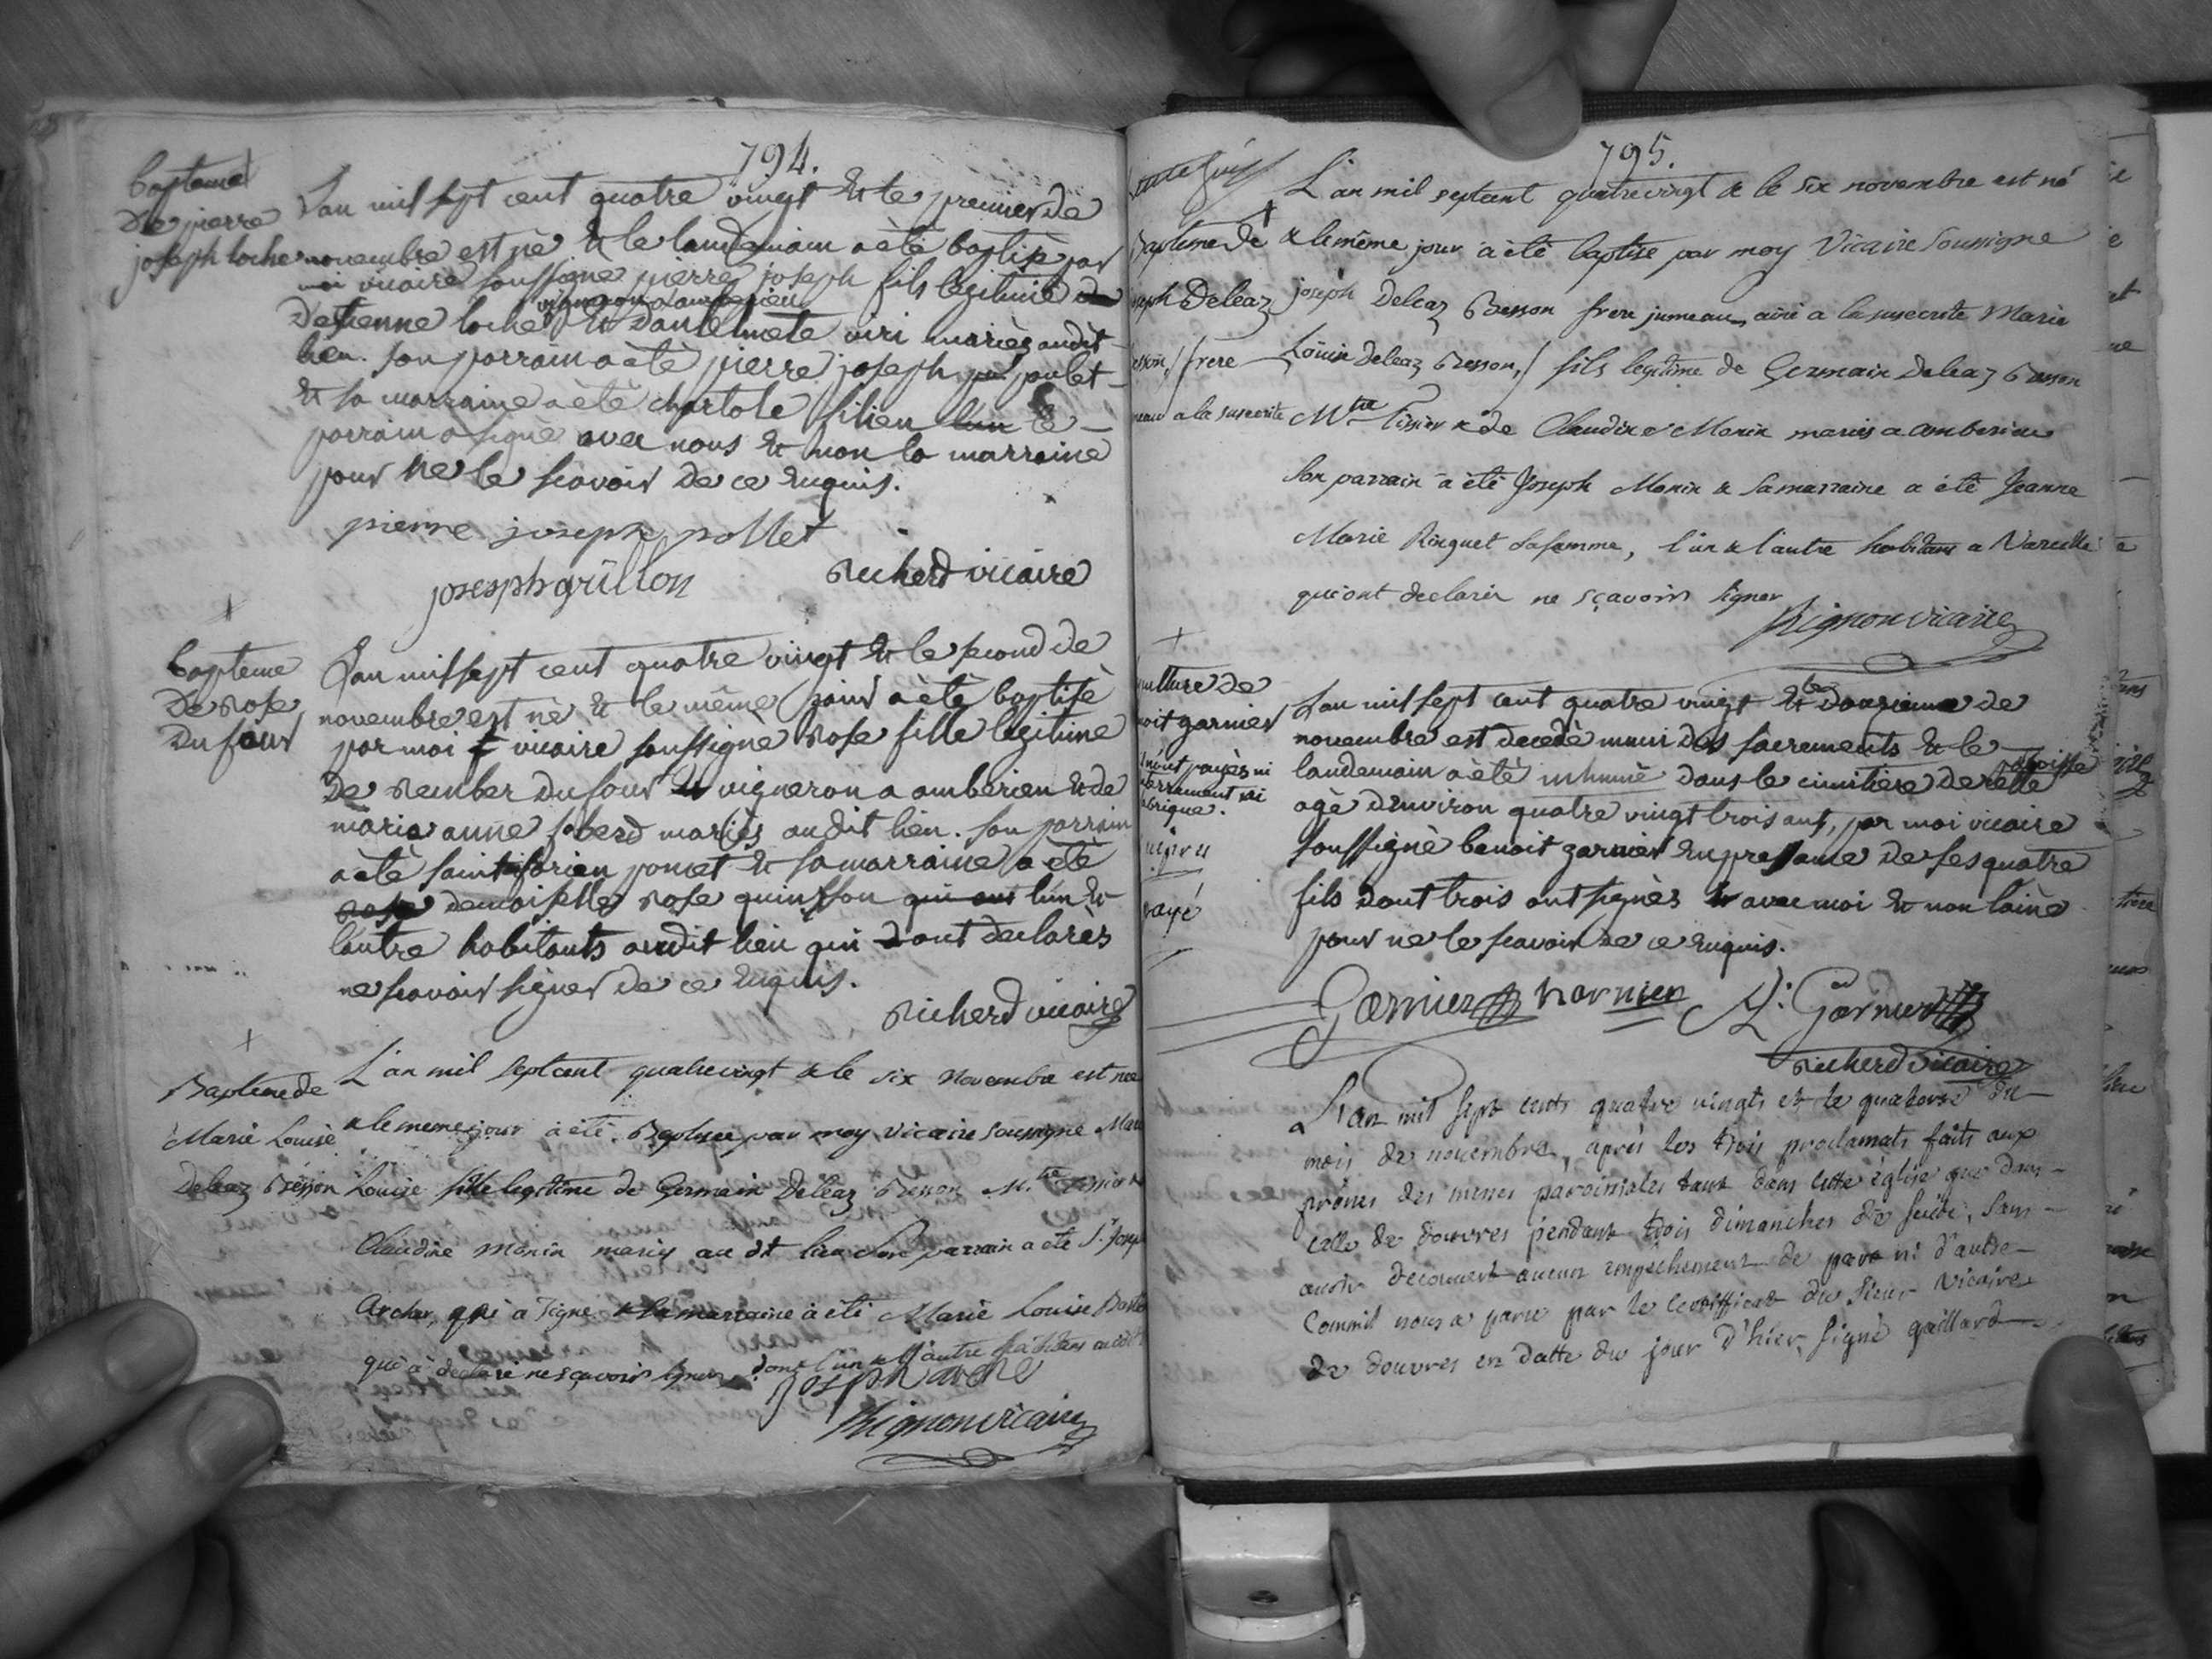 794.
bapteme
de pierre
joseph loche
L'an mil sept cent quatre vingt & le premier de
novembre est nè & le landemain a èté baptisè par
moi vicaire soussigne pierre joseph fils legitime de
vigneron a amberieu
D'etienne loche & d'antelmete viri mariès audit
lieu. son parrain a èté pierre joseph polet
& sa marraine a èté charlote filieu l'un le
parrain a signè avec nous & non la marraine
pour ne le scavoir de ce enquis.
pierre joseph pollet
joseph grillon
Richerd vicaire
bapteme
de rose
Dufour
L'an mil sept cent quatre vingt & le second de
novembre est nè & le même jour a èté baptisè
par moi vicaire soussignè rose fille legitime
de rember Dufour vigneron a amberieu & de
marie anne joberd mariès audit lieu. son parrain
a èté saintforien pomet & sa marraine a èté
rose demoiselle rose quinsson qui ont l'un &
l'autre habitants audit lieu qui ont declarès
ne scavoir signer de ce enquis.
Richerd vicaire
Baptême de
Marie Louise
Deleaz Besson
L'an mil septcent quatrevingt & le six Novembre est nee
& le meme jour à été Baptisee par moy vicaire soussigne Mari
Louise fille legitime de Germain Deleaz Besson M.tre Tissier &
Claudine Monin mariés au dt lieu son parrain a eté S.r Josep
Archer, qui a signe & la marraine à été Marie Louise
qui à declaré ne sçavoir signer dont l'un & l'autre habitans audit
joseph arche
Rignon vicaire
795.
Baptême de
joseph Deleaz
esson, / frere
meau a la suscrite
L'an mil septcent quatrevingt & le six novembre est né
& le même jour à été baptisé par moy Vicaire soussigne
joseph Deleaz Besson frere jumeau, ainé a la suscrite Marie
Louise Deleaz Besson, / fils legitime de Germain Deleaz Besson
M.tre Tissier & de Claudine Monin mariés a amberieu
son parrain à été Joseph Monin & sa marraine a été Jeanne
Marie Ringuet sa femme, l'un & l'autre habitans a Vareille
qui ont declarés ne sçavoir signer
Rignon vicaire
pulture de
noit garnier
n'ont payès ni
nterrement ni
abrique.
payé
L'an mil sept cent quatre vingt & le douzieme de
novembre est decedè muni des sacrements & le
landemain a èté inhumè dans le cimitière de cette paroisse
agè d'environ quatre vingt trois ans, par moi vicaire
soussignè benoit garnier en presence de ses quatre
fils dont trois ont signès avec moi & non l'ainè
pour ne le scavoir de ce enquis.
Garnier
Richerd vicaire
L'an mil sept cents quatre vingts et le quatorze du
mois de novembre, après les trois proclamats faits aux
prônes des messes paroissiales tant dans cette église que dans
celle de douvres pendant trois dimanches de suite, sans
avoir decouvert aucun empechement de part ni d'autre
Comme il nous a paru par le certifficat du sieur vicaire
de douvres en datte du jour d'hier, signé gaillard